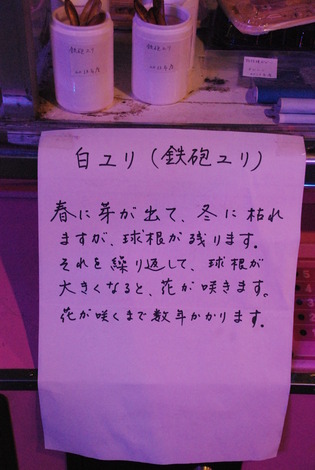 鉄砲ユリ
鉄砲ユリ
白ユリ（鉄砲ユリ）
春に芽が出て、冬に枯れ
ますが、球根が残ります。
それを繰り返して、球根が
大きくなると、花が咲きます。
花が咲くまで数年かかります。